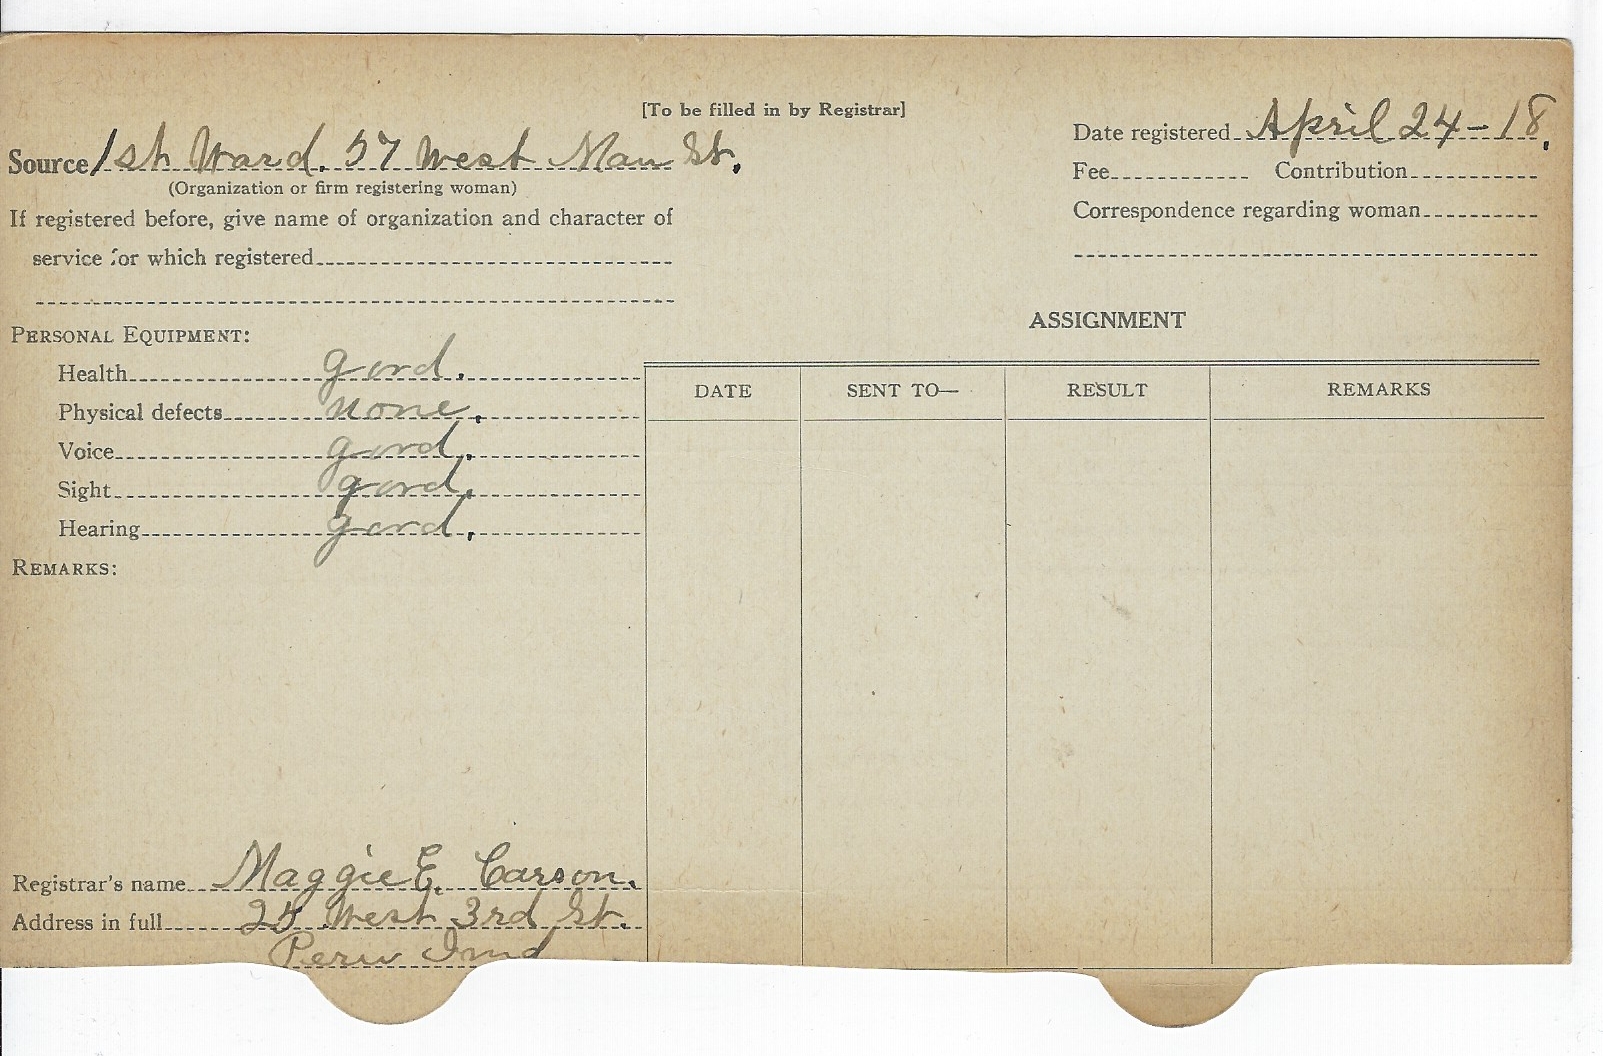 [To be filled in by Registrar]
Source 1st Ward. 57 West Main St.
(Organization or firm registering woman)
If registered before, give name of organization and character of
service for which registered
Date registered April 24-18.
Fee Contribution
Correspondence regarding woman
PERSONAL EQUIPMENT:
Health good.
Physical defects none.
Voice good.
Sight good.
Hearing good.
REMARKS:
ASSIGNMENT
DATE SENT TO— RESULT REMARKS
Registrar's name Maggie E. Carson.
Address in full 25 West 3rd St.
Peru Ind